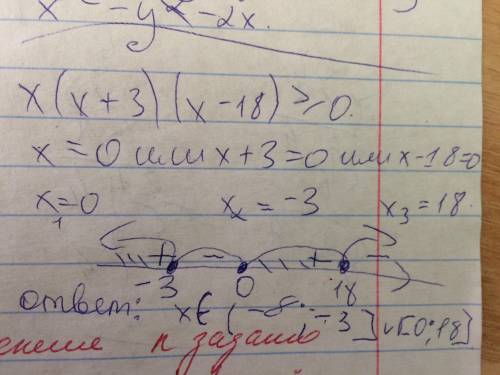 x(x+3)(x-18)≥0.
x=0 или x+3=0 или x-18=0
x₁=0 x₂=-3 x₃=18.
+ - + -
-3 0 18
ответ: x∈(-∞;-3]∪[0;18]
к задаю